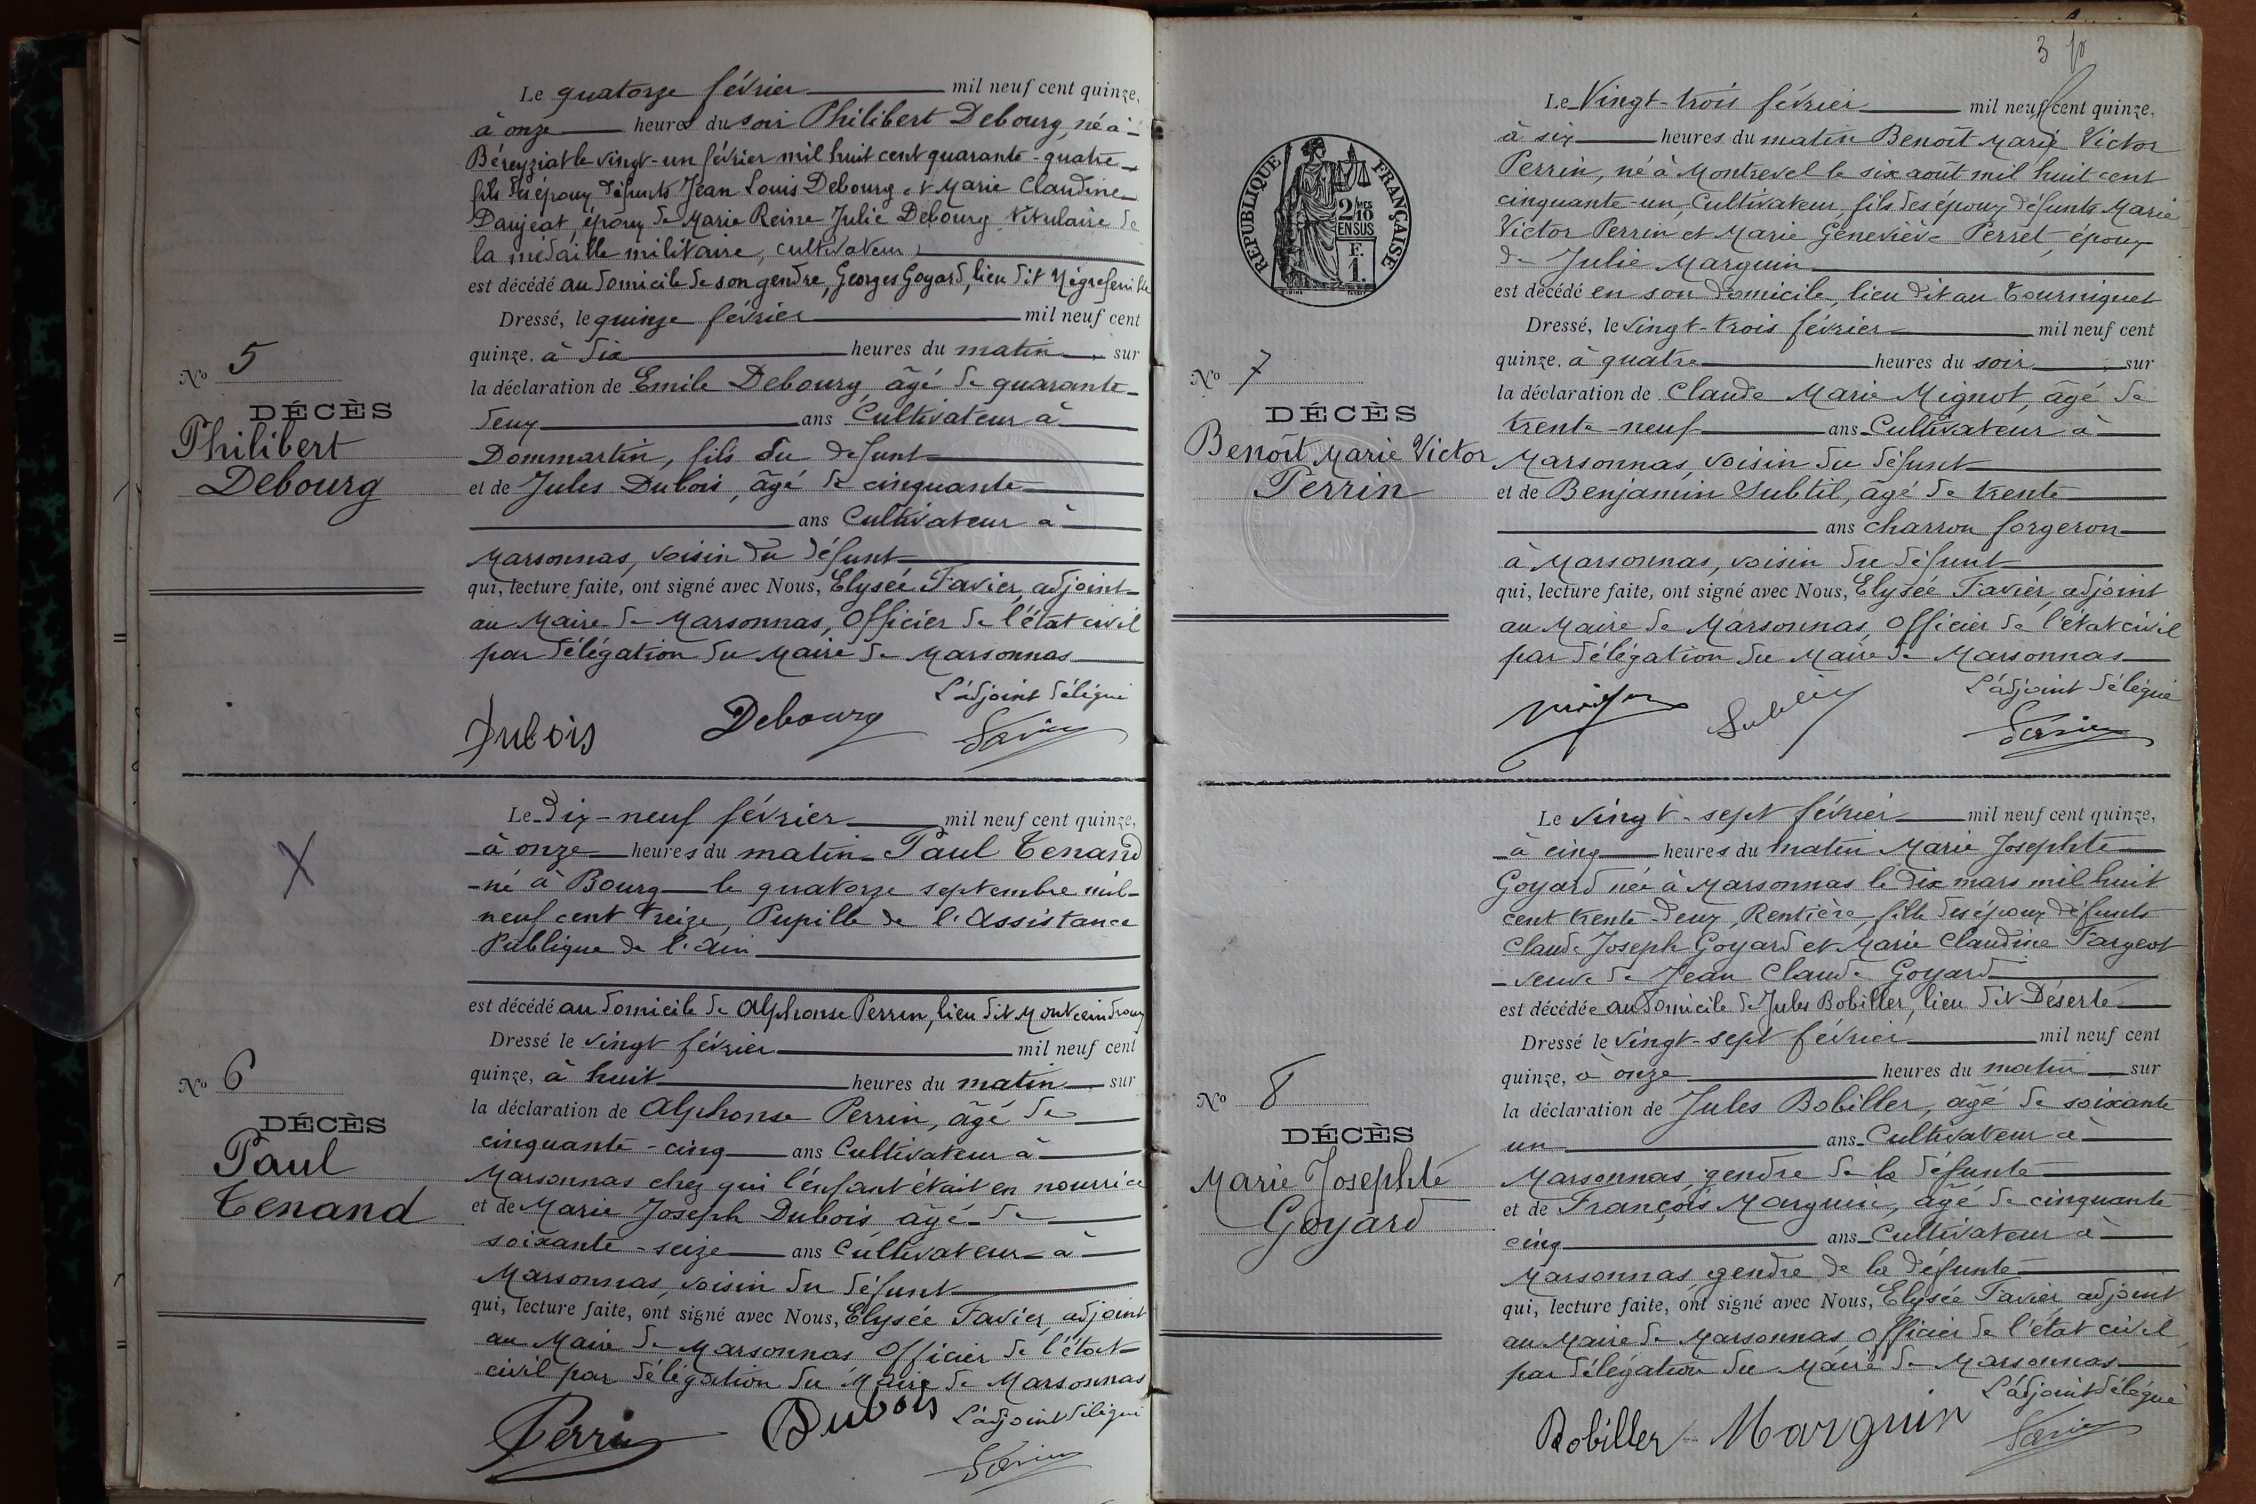 Le quatorze février mil neuf cent quinze,
à onze heures du soir Philibert Debourg, né à
Béreyziat le vingt-un février mil huit cent quarante-quatre
fils des époux défunts Jean Louis Debourg et Marie Claudine
Daujeat, époux de Marie Reine Julie Debourg titulaire de
la médaille militaire, cultivateur
est décédé au domicile de son gendre, Georges Goyard, lieu dit
Dressé, le quinze février mil neuf cent
quinze. à dix heures du matin sur
No 5
la déclaration de Emile Debourg, âgé de quarante-
DÉCÈS
deux ans Cultivateur à
Philibert
Dommartin, fils du défunt
Debourg
et de Jules Dubois, âgé de cinquante
ans Cultivateur à
Marsonnas, voisin du défunt
qui, lecture faite, ont signé avec Nous, Elysée Favier, adjoint
au Maire de Marsonnas, Officier de l'état civil
par délégation du Maire de Marsonnas
L'adjoint délégué
Dubois Debourg Favier
X
Le Dix-neuf février mil neuf cent quinze,
à onze heures du matin Paul Tenand
né à Bourg le quatorze septembre mil
neuf cent treize, Pupille de l'Assistance
Publique de l'Ain
est décédé au domicile de Alphonse Perrin, lieu dit
Dressé le vingt février mil neuf cent
No 6
quinze, à huit heures du matin sur
la déclaration de Alphonse Perrin, âgé de
DÉCÈS
cinquante-cinq ans Cultivateur à
Paul
Marsonnas chez qui l'enfant était en nourrice
Tenand
et de Marie Joseph Dubois âgé de
soixante-seize ans Cultivateur à
Marsonnas, voisin du défunt
qui, lecture faite, ont signé avec Nous, Elysée Favier, adjoint
au Maire de Marsonnas Officier de l'état
civil par délégation du Maire de Marsonnas
L'adjoint délégué
Perrin Dubois Favier
3
Le Vingt-trois février mil neuf cent quinze,
à six heures du matin Benoît Marie Victor
Perrin, né à Montrevel le six août mil huit cent
cinquante-un, Cultivateur, fils des époux défunts Marie
Victor Perrin et Marie Geneviève Perret, époux
de Julie Marguin
RÉPUBLIQUE FRANÇAISE
2/10 MES
EN SUS
F.
1.
est décédé en son domicile, lieu dit au Tourniquet
Dressé, le vingt-trois février mil neuf cent
quinze. à quatre heures du soir sur
No 7
la déclaration de Claude Marie Mignot, âgé de
DÉCÈS
trente-neuf ans Cultivateur à
Benoît Marie Victor
Marsonnas, voisin du défunt
Perrin
et de Benjamin Subtil, âgé de trente
ans charron forgeron
à Marsonnas, voisin du défunt
qui, lecture faite, ont signé avec Nous, Elysée Favier, adjoint
au Maire de Marsonnas, Officier de l'état civil
par délégation du Maire de Marsonnas
L'adjoint délégué
Favier
Le vingt-sept février mil neuf cent quinze,
à cinq heures du matin Marie Josephte
Goyard née à Marsonnas le dix mars mil huit
cent trente deux, Rentière, fille des époux défunts
Claude Joseph Goyard et Marie Claudine Fargeot
veuve de Jean Claude Goyard
est décédée au domicile de Jules Bobiller, lieu dit Déserte
Dressé le vingt-sept février mil neuf cent
quinze, à onze heures du matin sur
No 8
la déclaration de Jules Bobiller, âgé de soixante
DÉCÈS
un ans Cultivateur à
Marie Josephte
Marsonnas, gendre de la défunte
Goyard
et de François Marguin, âgé de cinquante
cinq ans Cultivateur à
Marsonnas, gendre de la défunte
qui, lecture faite, ont signé avec Nous, Elysée Favier adjoint
au Maire de Marsonnas Officier de l'état civil
par délégation du Maire de Marsonnas
L'adjoint délégué
Bobiller Marguin Favier